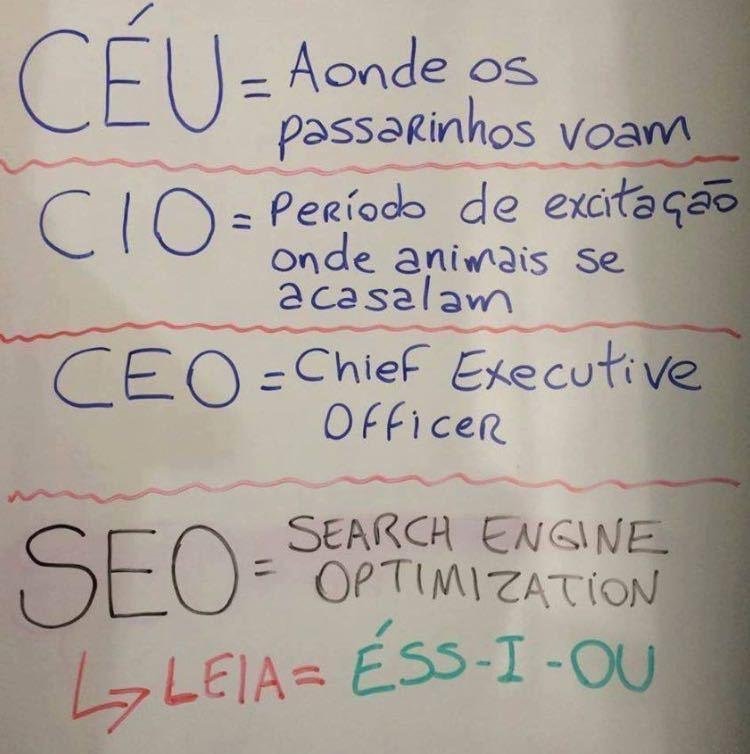 CÉU = Aonde os
passarinhos voam
CIO = Período de excitação
onde animais se
acasalam
CEO = Chief Executive
Officer
SEO = SEARCH ENGINE
OPTIMIZATION
↳ LEIA = ÉSS-I-OU